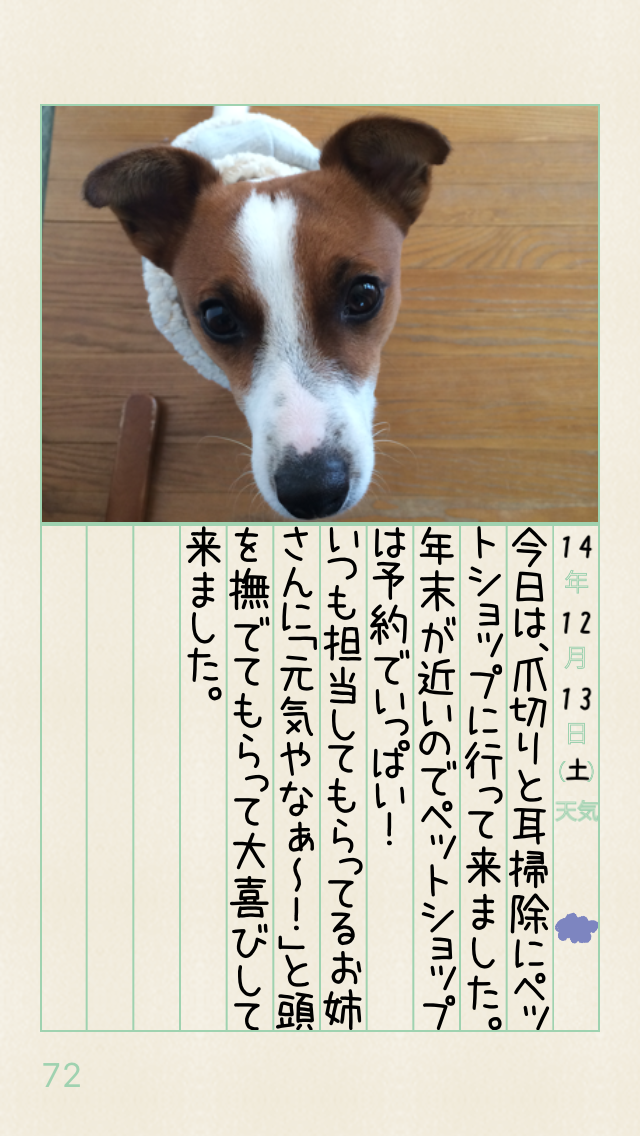 14年12月13日(土)天気
今日は、爪切りと耳掃除にペッ
トショップに行って来ました。
年末が近いのでペットショップ
は予約でいっぱい!
いつも担当してもらってるお姉
さんに「元気やなぁ～!」と頭
を撫でてもらって大喜びして
来ました。
72